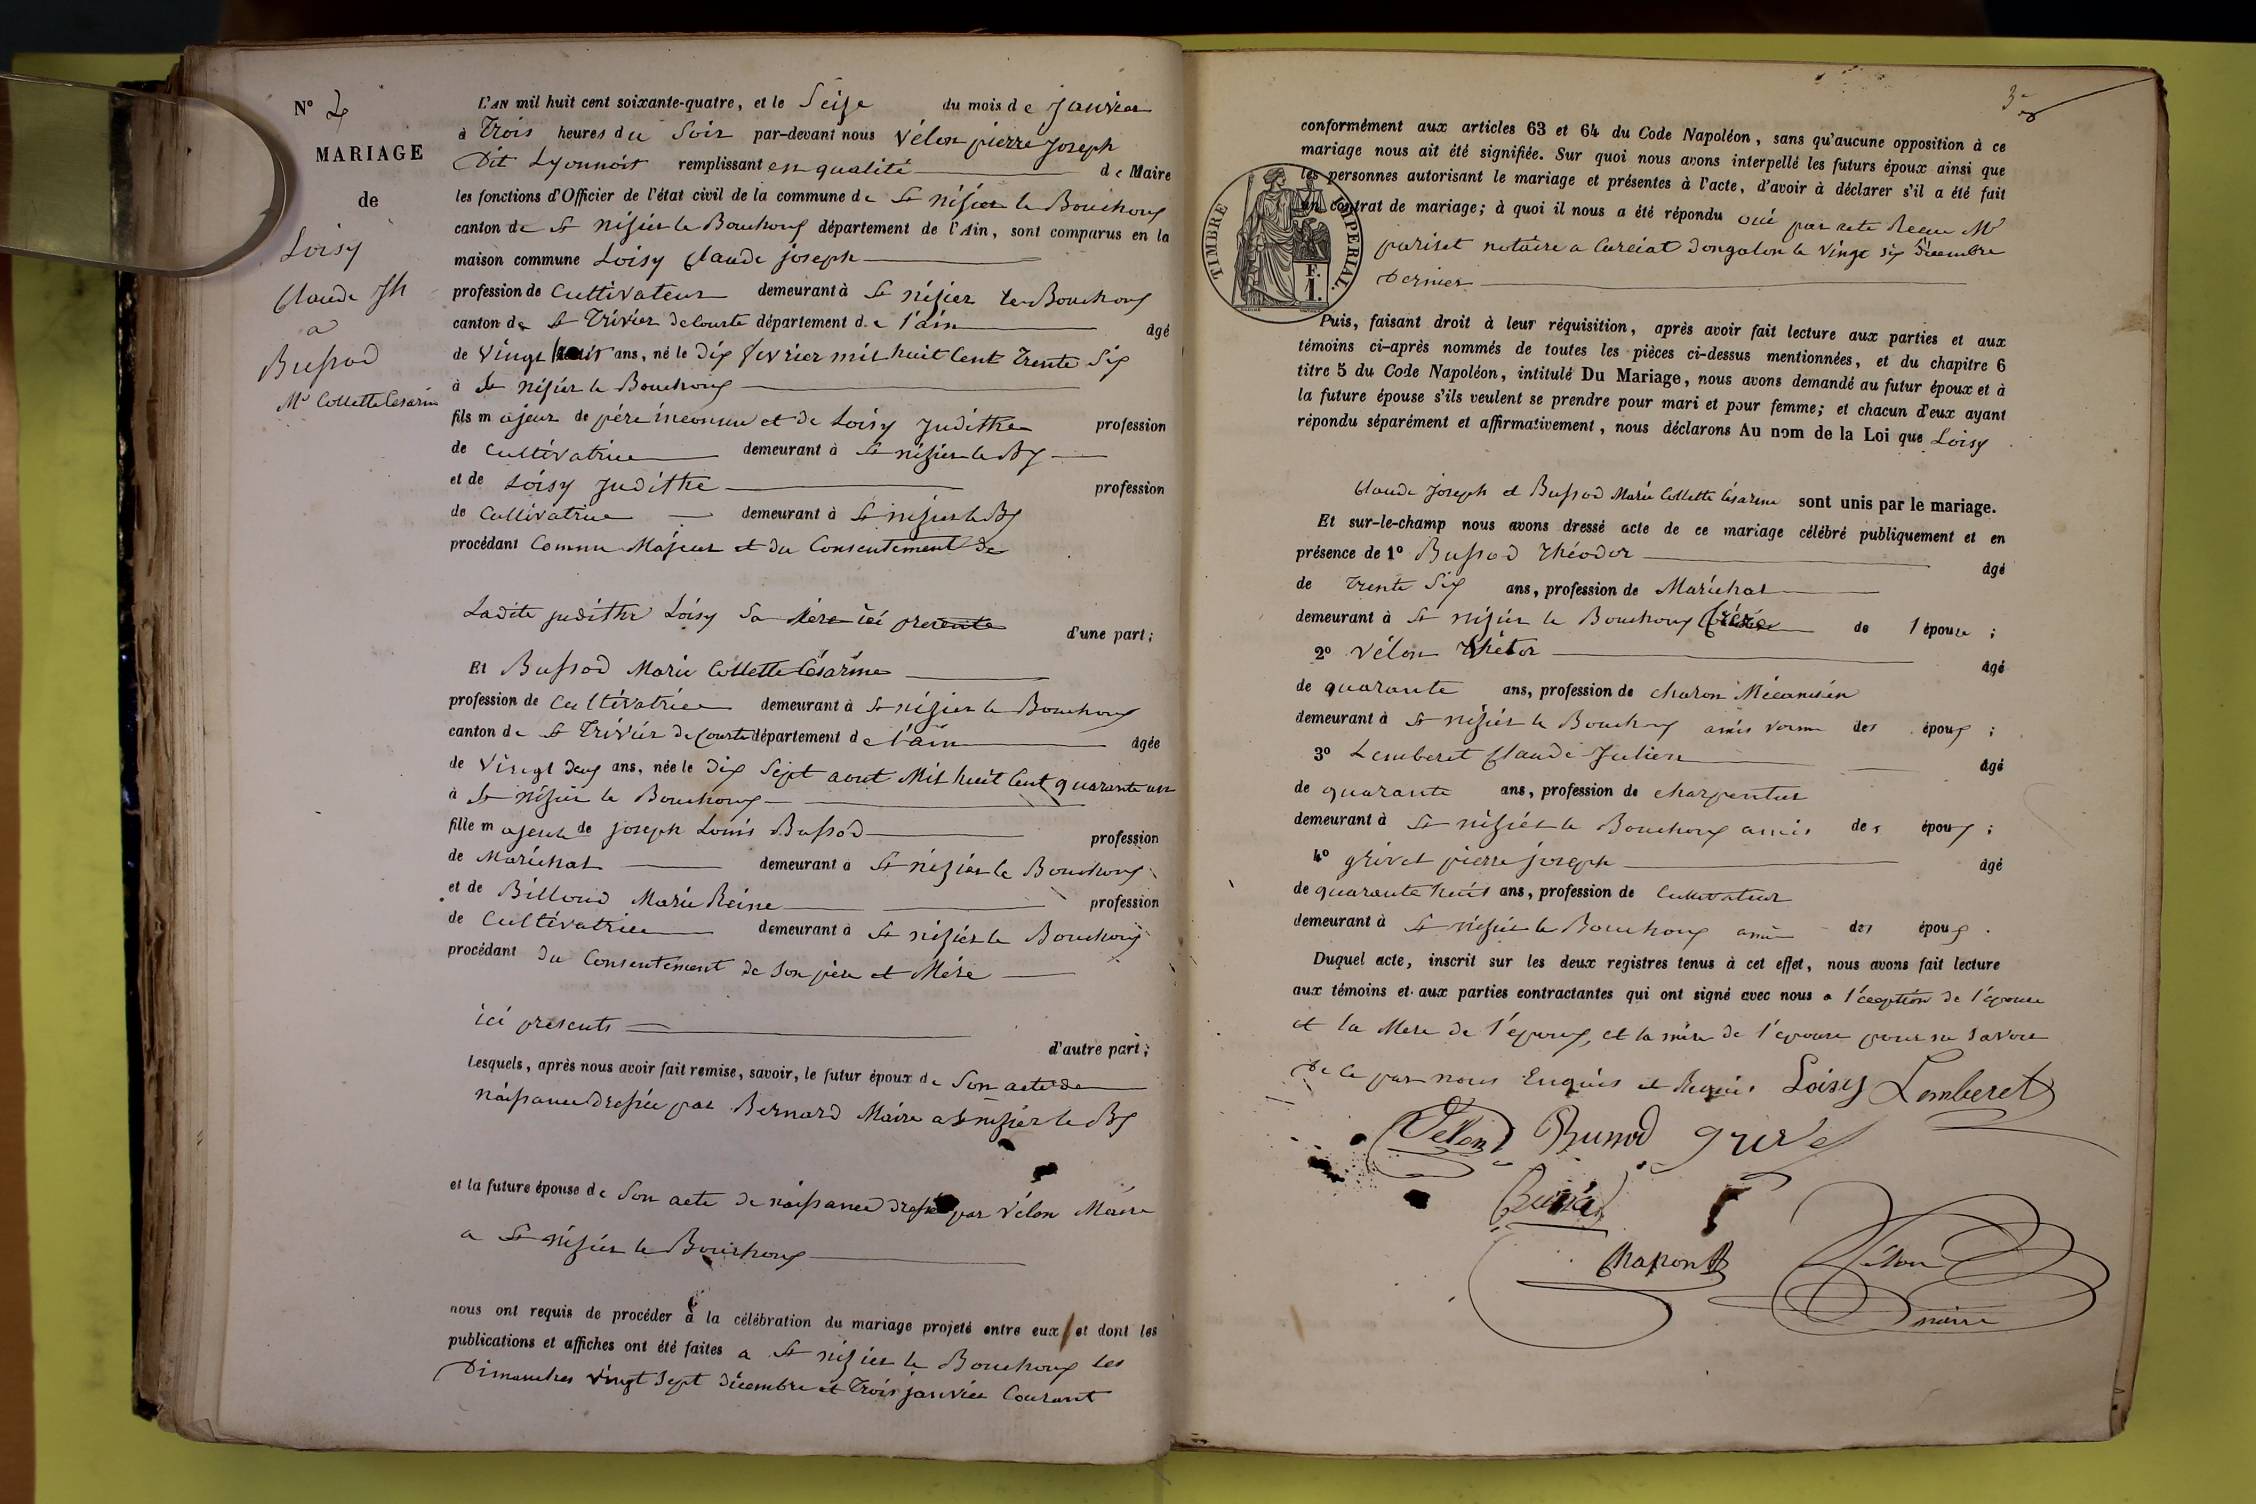 N° 2
MARIAGE
de
Loisy
Claude Jh
a
Bussod
Mie Collette Césarine
L'AN mil huit cent soixante-quatre, et le Seize du mois de Janvier
à Trois heures du Soir par-devant nous Vélon pierre Joseph
Dit Lyonnois remplissant en qualité de Maire
les fonctions d'Officier de l'état civil de la commune de St nizier le Bouchoux
canton de St nizier le Bouchoux département de l'Ain, sont comparus en la
maison commune Loisy Claude joseph
profession de Cultivateur demeurant à St nizier le Bouchoux
canton de St Trivier de Courte département de l'ain âgé
de Vingt huit ans, né le Dix fevrier mil huit Cent Trente Six
à St nizier le Bouchoux
fils majeur de père inconnu et de Loisy Judithe profession
de Cultivatrice demeurant à St nizier le Bx
et de Loisy Judithe profession
de Cultivatrice demeurant à St nizier le Bx
procédant Comme Majeur et du Consentement de
Ladite judithe Loisy Sa Mère ici presente d'une part;
Et Bussod Marie Collette Césarine
profession de Cultivatrice demeurant à St nizier le Bouchoux
canton de St Trivier de Courte département de l'ain âgée
de Vingt deux ans, née le Dix Sept aout Mil huit Cent quarante un
à St nizier le Bouchoux
fille majeure de joseph Louis Bussod profession
de Maréchal demeurant à St nizier le Bouchoux
et de Billoud Marie Reine profession
de Cultivatrice demeurant à St nizier le Bouchoux
procédant du Consentement de Son père et Mère
ici presents d'autre part;
Lesquels, après nous avoir fait remise, savoir, le futur époux de Son acte de
naissance dressée par Bernard Maire a St nizier le Bx
et la future épouse de Son acte de naissance dressé par Vélon Maire
a St nizier le Bouchoux
nous ont requis de procéder à la célébration du mariage projeté entre eux et dont les
publications et affiches ont été faites a St nizier le Bouchoux les
Dimanches Vingt Sept Décembre et Trois janvier Courant
3
conformément aux articles 63 et 64 du Code Napoléon, sans qu'aucune opposition à ce
mariage nous ait été signifiée. Sur quoi nous avons interpellé les futurs époux ainsi que
les personnes autorisant le mariage et présentes à l'acte, d'avoir à déclarer s'il a été fait
un contrat de mariage; à quoi il nous a été répondu oui par acte Recu Me
pariset notaire a Curciat Dongalon le Vingt Six Décembre
Dernier
TIMBRE IMPÉRIAL.
F.
1.
Puis, faisant droit à leur réquisition, après avoir fait lecture aux parties et aux
témoins ci-après nommés de toutes les pièces ci-dessus mentionnées, et du chapitre 6
titre 5 du Code Napoléon, intitulé Du Mariage, nous avons demandé au futur époux et à
la future épouse s'ils veulent se prendre pour mari et pour femme; et chacun d'eux ayant
répondu séparément et affirmativement, nous déclarons Au nom de la Loi que Loisy
Claude Joseph et Bussod Marie Collette Césarine sont unis par le mariage.
Et sur-le-champ nous avons dressé acte de ce mariage célébré publiquement et en
présence de 1° Bussod Théodor âgé
de Trente Six ans, profession de Maréchal
demeurant à St nizier le Bouchoux frère de l'épouse;
2° Vélon âgé
de quarante ans, profession de charon Mécanisien
demeurant à St nizier le Bouchoux amis des époux;
3° Lemberet Claude Julien âgé
de quarante ans, profession de charpentier
demeurant à St nizier le Bouchoux amis des époux;
4° grivet pierre joseph âgé
de quarante huit ans, profession de Cultivateur
demeurant à St nizier le Bouchoux amis des époux.
Duquel acte, inscrit sur les deux registres tenus à cet effet, nous avons fait lecture
aux témoins et aux parties contractantes qui ont signé avec nous a l'éception de l'épouse
et la Mère de l'époux, et la mère de l'épouse pour ne Savoir
De ce par nous Enquis et Requis Loisy Lemberet
Velon Bussod grivet
Chapon Vélon
maire